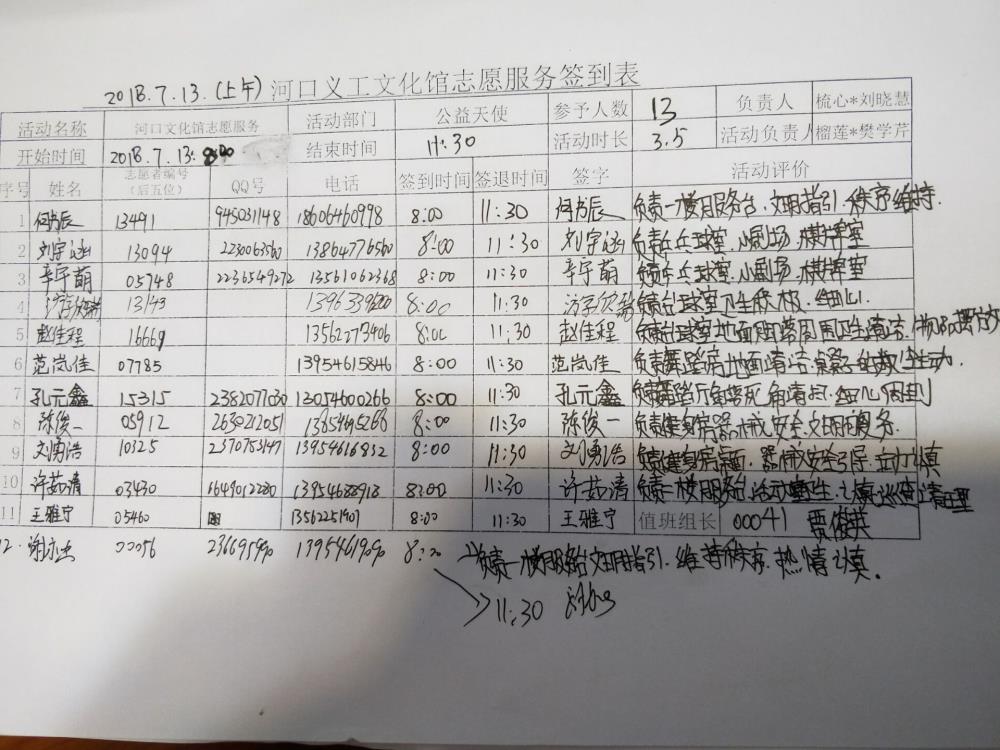 2018.7.13.(上午) 河口义工文化馆志愿服务签到表
活动名称 河口文化馆志愿服务 活动部门 公益天使 参予人数 13 负责人 梳心*刘晓慧
开始时间 2018.7.13. 8:00 结束时间 11:30 活动时长 3.5 活动负责人 榴莲*樊学芹
序号 姓名 志愿者编号（后五位） QQ号 电话 签到时间 签退时间 签字 活动评价
1 何书辰 13491 945031148 18606460998 8:00 11:30 何书辰 负责一楼服务台.文明指引.秩序维持.
2 刘宇涵 13094 2230063560 13864776560 8:00 11:30 刘宇涵 负责乒乓球室.小剧场.棋牌室
3 辛宇萌 05748 2236549272 13561062368 8:00 11:30 辛宇萌 负责乒乓球室.小剧场.棋牌室
4 13143 8:00 11:30 负责台球室卫生 细心.
5 赵佳程 16669 13562273406 8:00 11:30 赵佳程 负责台球室地面 周围卫生清洁.
6 范岚佳 07785 13954615846 8:00 11:30 范岚佳 负责舞蹈房地面清洁.
7 孔元鑫 15315 2382077030 13054600266 8:00 11:30 孔元鑫 负责舞蹈厅
8 陈俊一 05912 2630212051 8:00 11:30 陈俊一 负责健身房器械安全.文明服务.
9 刘勇浩 10325 2370753147 13954616832 8:00 11:30 刘勇浩 负责健身房 器械安全引导.
10 许茹清 03430 1649012280 13954688918 8:00 11:30 许茹清 负责一楼服务台
11 王雅宁 05460 13562251901 8:00 11:30 王雅宁 值班组长 00041 贾俊英
12. 00056 236695990 8:00 负责一楼服务台文明指引.维持秩序.热情认真.
11:30